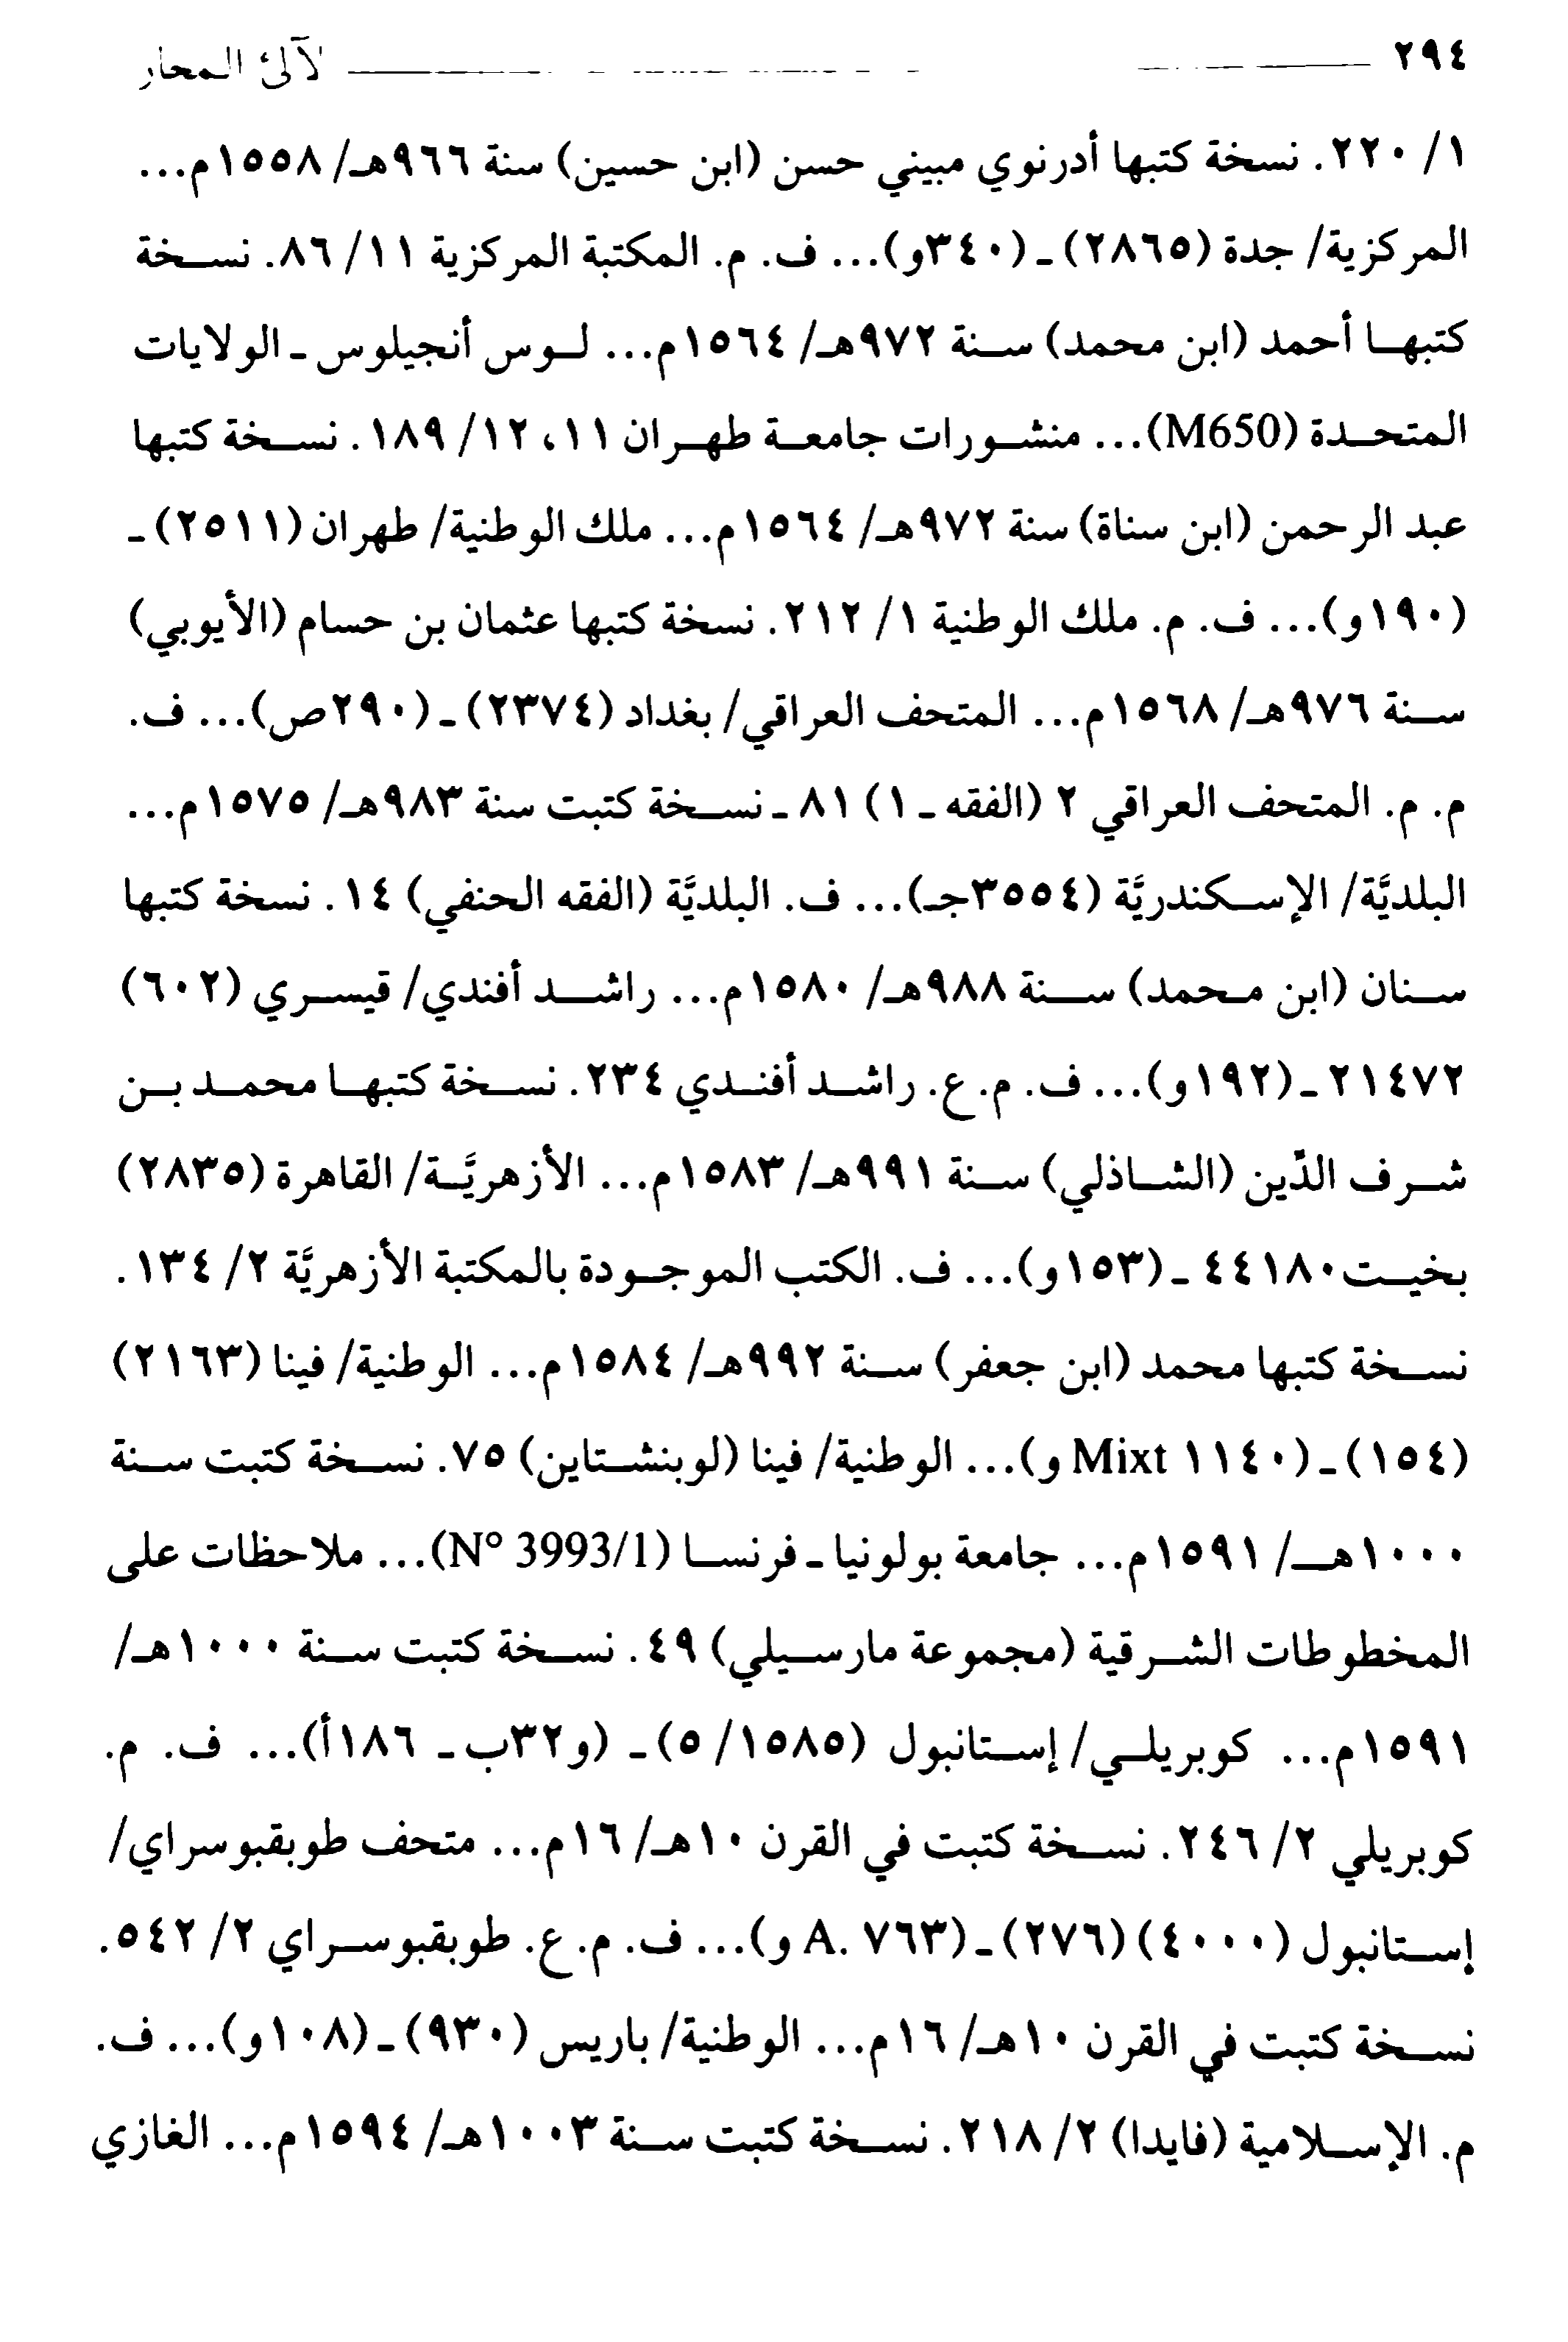 ٢٩٤ لآلئ المحار
١/ ٢٢٠. نسخة كتبها أدرنوي مبيني حسن (ابن حسين) سنة ٩٦٦هـ/ ١٥٥٨م...
المركزية/ جدة (٢٨٦٥) ـ (٣٤٠و)... ف. م. المكتبة المركزية ١١/ ٨٦. نسخة
كتبها أحمد (ابن محمد) سنة ٩٧٢هـ/ ١٥٦٤م... لوس أنجيلوس ـ الولايات
المتحدة (M650)... منشورات جامعة طهران ١١، ١٢/ ١٨٩. نسخة كتبها
عبد الرحمن (ابن سناة) سنة ٩٧٢هـ/ ١٥٦٤م... ملك الوطنية/ طهران (٢٥١١) ـ
(١٩٠و)... ف. م. ملك الوطنية ١/ ٢١٢. نسخة كتبها عثمان بن حسام (الأيوبي)
سنة ٩٧٦هـ/ ١٥٦٨م... المتحف العراقي/ بغداد (٢٣٧٤) ـ (٢٩٠ص)... ف.
م. م. المتحف العراقي ٢ (الفقه ـ ١) ٨١ ـ نسخة كتبت سنة ٩٨٣هـ/ ١٥٧٥م...
البلديَّة/ الإسكندريَّة (٣٥٥٤جـ)... ف. البلديَّة (الفقه الحنفي) ١٤. نسخة كتبها
سنان (ابن محمد) سنة ٩٨٨هـ/ ١٥٨٠م... راشد أفندي/ قيسري (٦٠٢)
٢١٤٧٢ ـ (١٩٢و)... ف. م. ع. راشد أفندي ٢٣٤. نسخة كتبها محمد بن
شرف الدِّين (الشاذلي) سنة ٩٩١هـ/ ١٥٨٣م... الأزهريَّة/ القاهرة (٢٨٣٥)
بخيت ٤٤١٨٠ ـ (١٥٣و)... ف. الكتب الموجودة بالمكتبة الأزهريَّة ٢/ ١٣٤.
نسخة كتبها محمد (ابن جعفر) سنة ٩٩٢هـ/ ١٥٨٤م... الوطنية/ فينا (٢١٦٣)
(١٥٤) ـ (Mixt ١١٤٠ و)... الوطنية/ فينا (لوبنشتاين) ٧٥. نسخة كتبت سنة
١٠٠٠هـ/ ١٥٩١م... جامعة بولونيا ـ فرنسا (N° 3993/1)... ملاحظات على
المخطوطات الشرقية (مجموعة مارسيلي) ٤٩. نسخة كتبت سنة ١٠٠٠هـ/
١٥٩١م... كوبريلي/ إستانبول (١٥٨٥/ ٥) ـ (و٣٢ب ـ ١٨٦أ)... ف. م.
كوبريلي ٢/ ٢٤٦. نسخة كتبت في القرن ١٠هـ/ ١٦م... متحف طوبقبوسراي/
إستانبول (٤٠٠٠) (٢٧٦) ـ (A. ٧٦٣ و)... ف. م. ع. طوبقبوسراي ٢/ ٥٤٢.
نسخة كتبت في القرن ١٠هـ/ ١٦م... الوطنية/ باريس (٩٣٠) ـ (١٠٨و)... ف.
م. الإسلامية (فايدا) ٢/ ٢١٨. نسخة كتبت سنة ١٠٠٣هـ/ ١٥٩٤م... الغازي